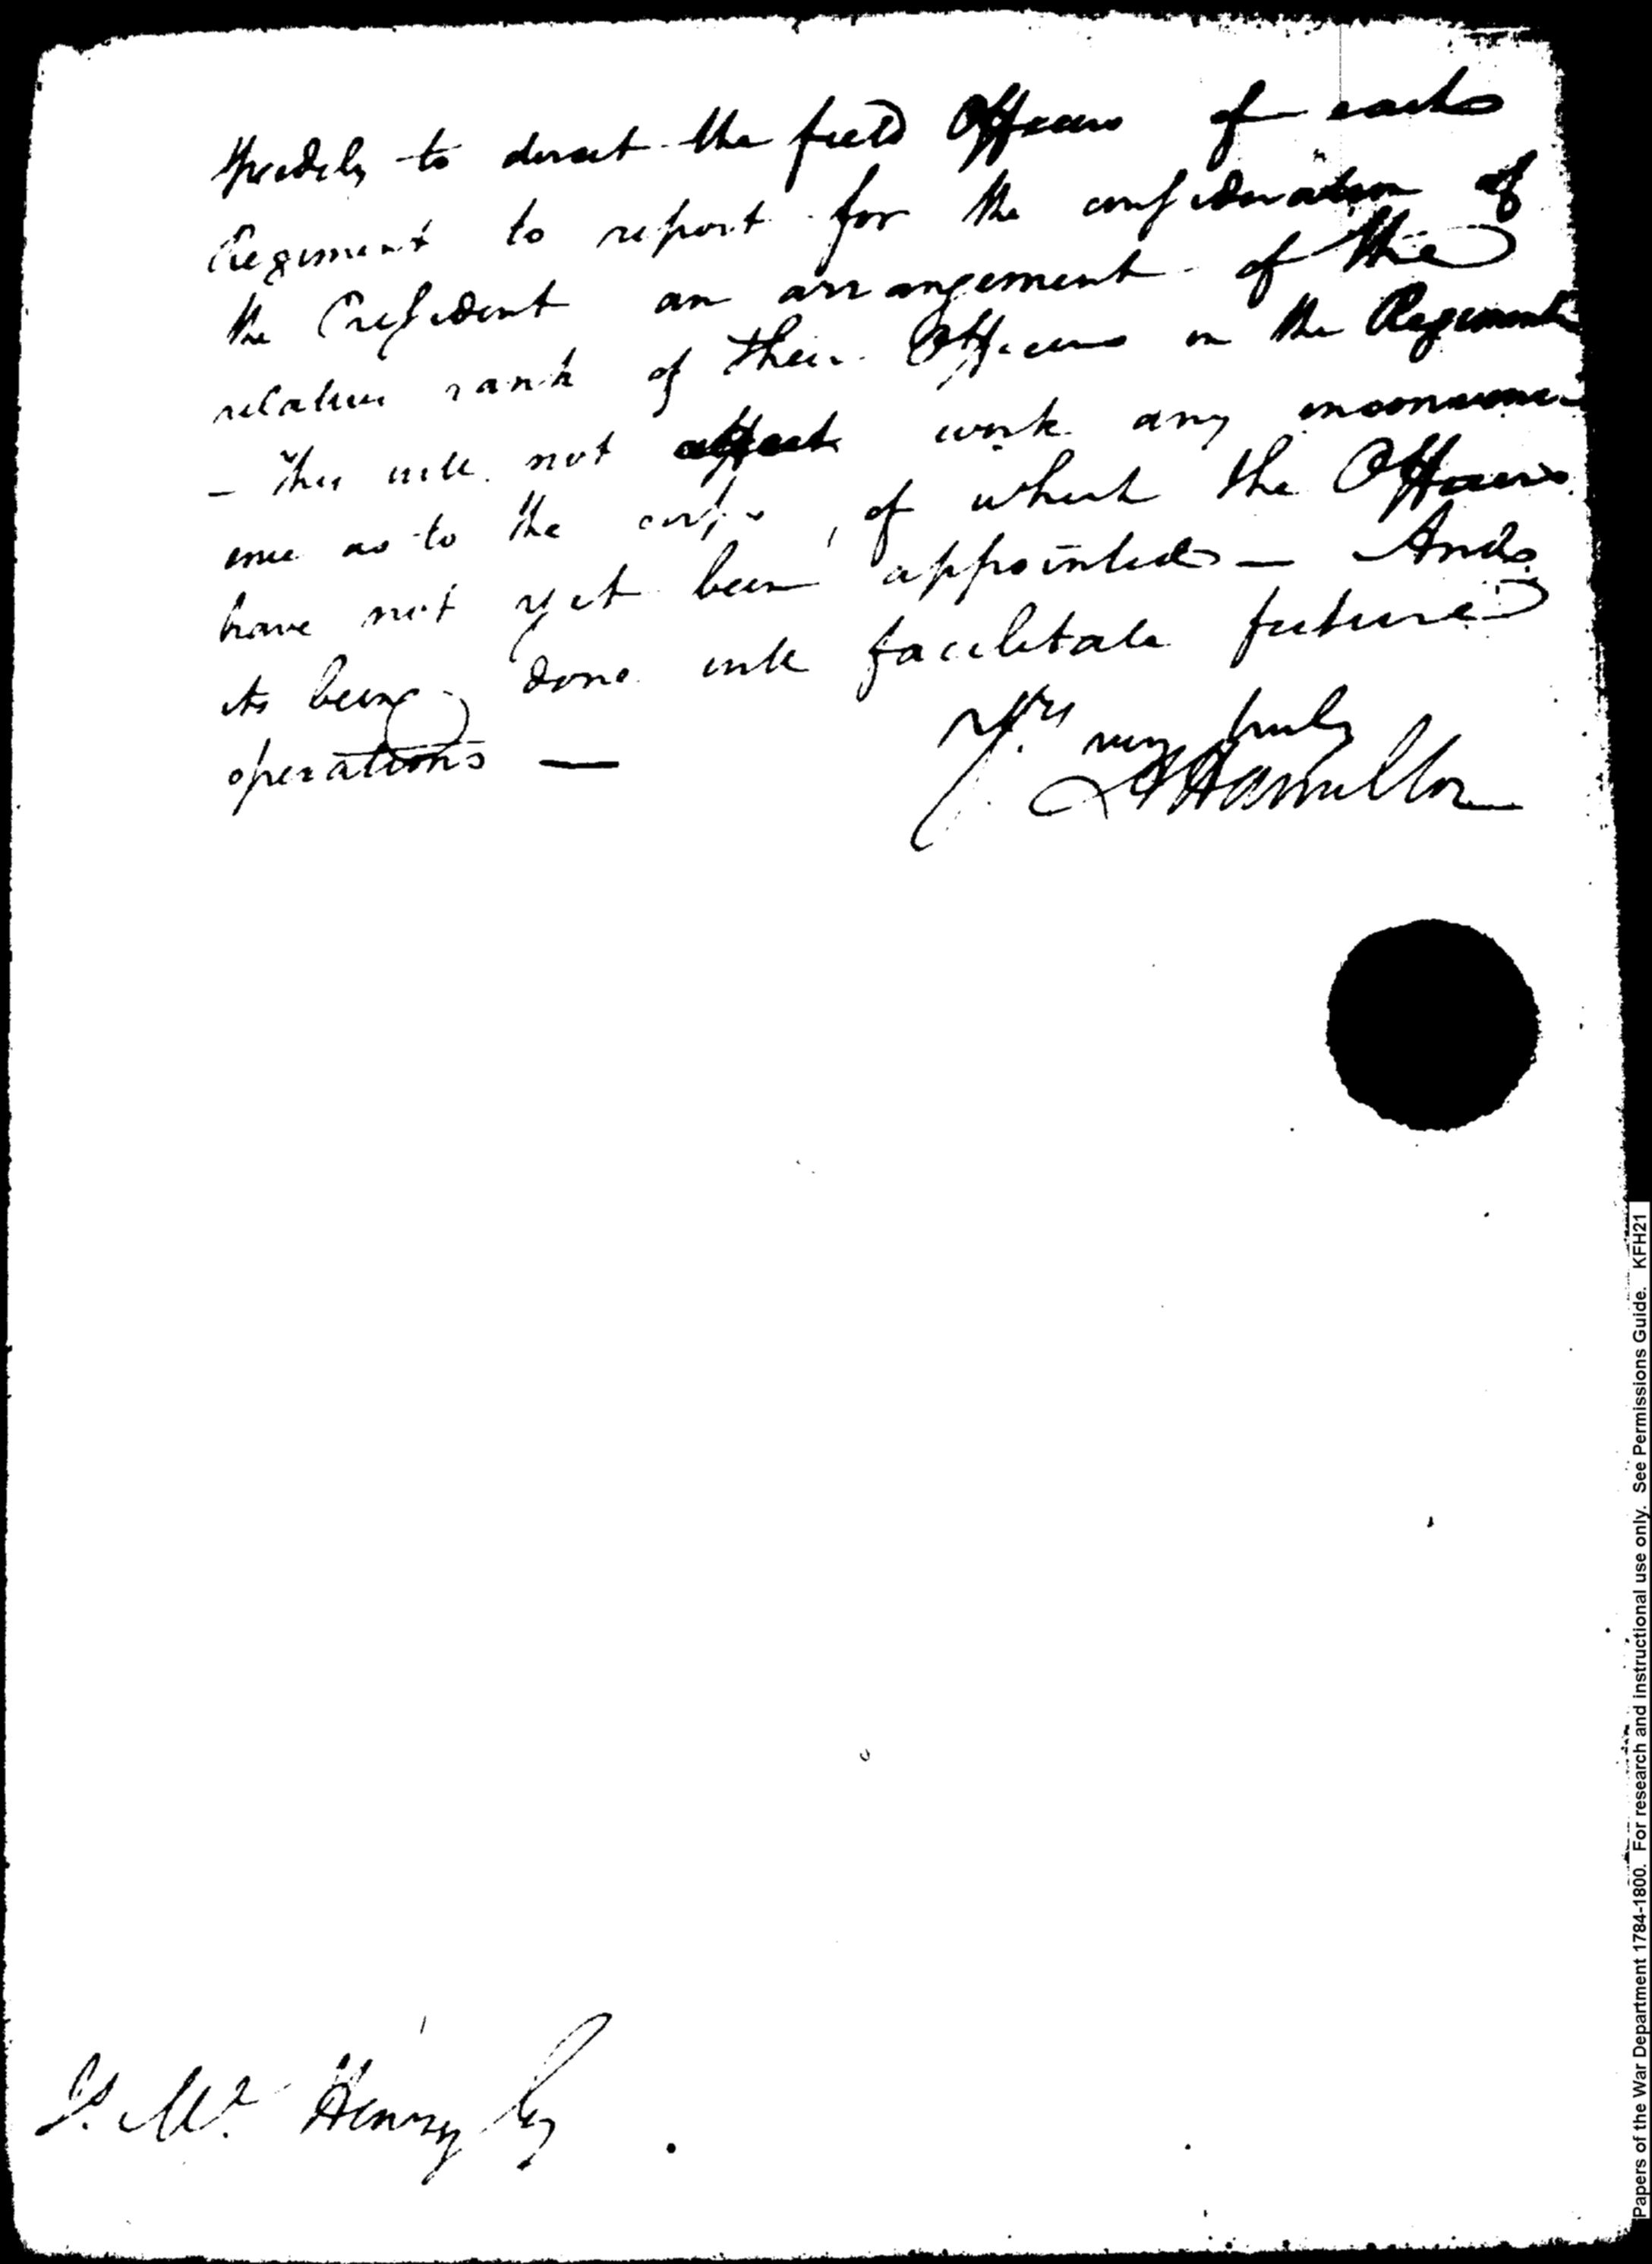 speedily to direct the field Officers of each
Regiment to report for the consideration of
the President an arrangement of the
relative rank of their Officers in the Regiment
— This will not affect work any inconveni
ence as to the corps, of which the Officers
have not yet been appointed — And
its being done will facilitate future
operations —
Yrs very truly
A Hamilton
Js. Mc Henry Esq
Papers of the War Department 1784-1800. For research and instructional use only. See Permissions Guide. KFH21